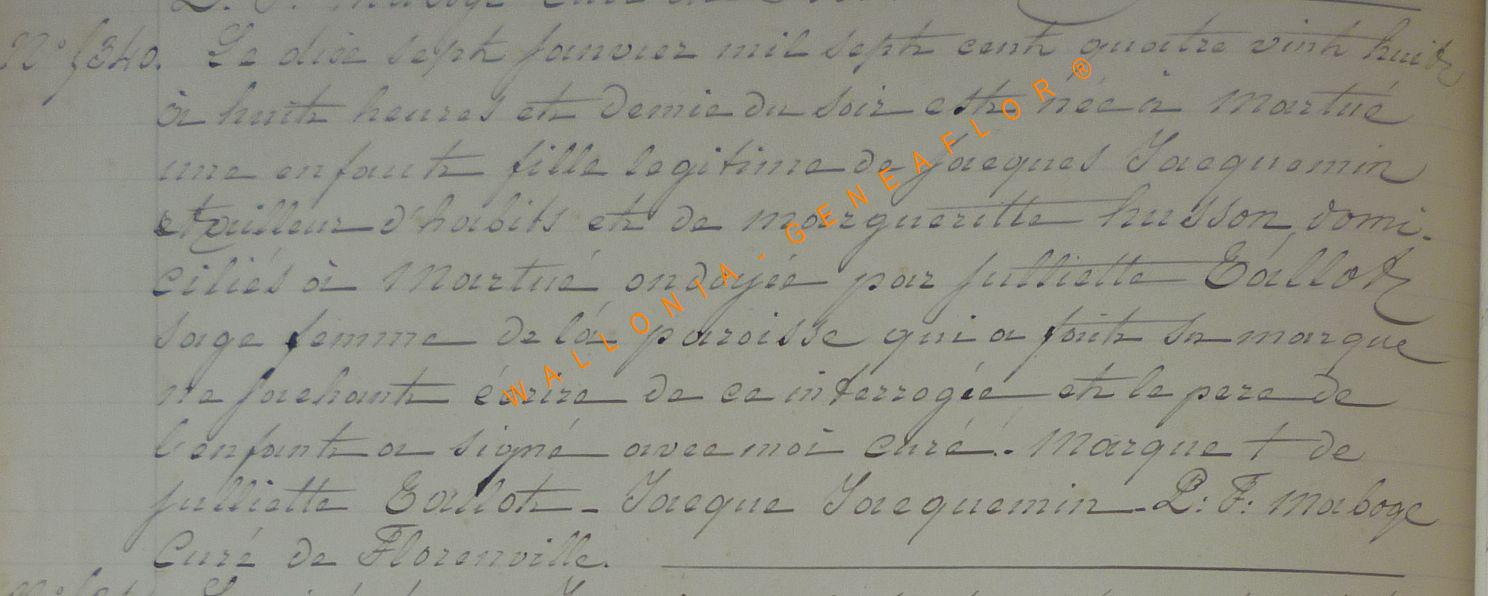 L. F. Maboge curé de
N° 1340. Le dix sept janvier mil sept cent quatre vint huit
à huit heures et demie du soir est née à Martué
une enfant fille legitime de Jacques Jacquemin
tailleur d'habits et de Margueritte husson, domi-
ciliés à Martué ondoyée par julliette Tallot
sage femme de la paroisse qui a fait sa marque
ne sachant écrire de ce interrogée et le pere de
l'enfant a signé avec moi curé. - Marque † de
julliette Tallot - Jacque Jacquemin - L: F: Maboge
Curé de Florenville.
WALLONIA - GENEAFLOR ®